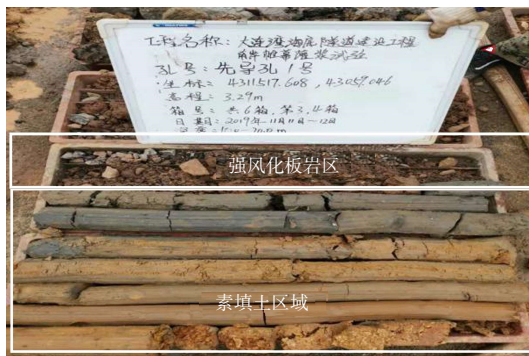 工程名称：大连湾海底隧道建设工程
帷幕灌浆试验
孔号：先导孔1号
坐标：4311517.608，43057.046
高程：3.29m
箱号：共6箱，第3,4箱
日期：2019年11月11日—12日
强风化板岩区
素填土区域